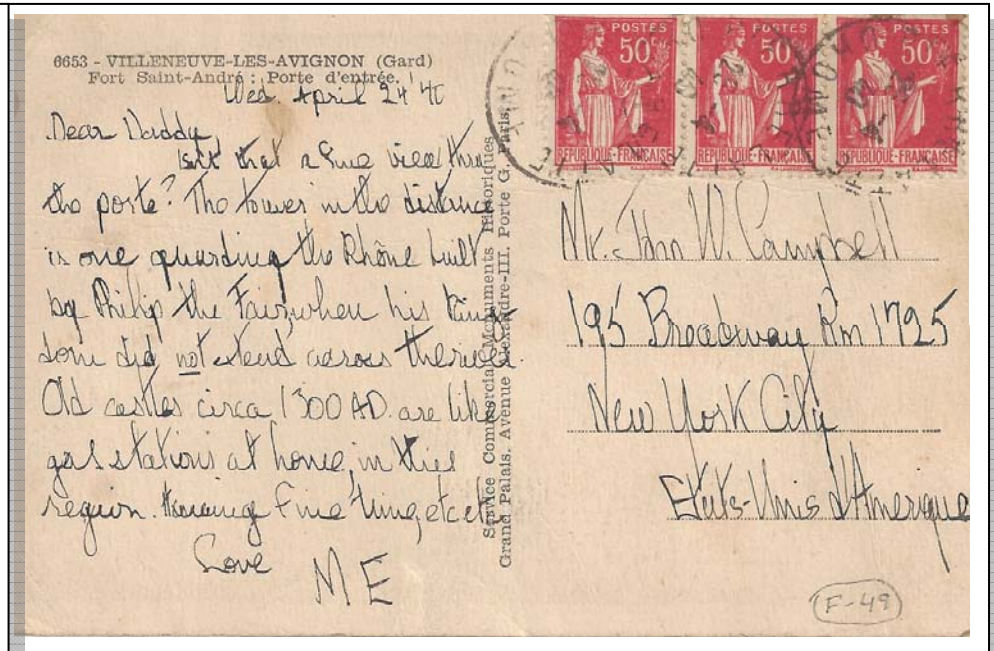 6653 - VILLENEUVE-LES-AVIGNON (Gard)
Fort Saint-André : Porte d'entrée.
Wed. April 24 '40
Dear Daddy,
Isn't that a fine view thru
the porte? The tower in the distance
is one guarding the Rhône built
by Philip the Fair, when his King-
dom did not extend across the river.
Old castles circa 1300 AD. are like
gas stations at home, in this
region. Having fine time, etc etc
Love ME
Service Commercial Monuments Historiques
Grand Palais. Avenue Alexandre-III. Porte G. Paris.
POSTES
50c
REPUBLIQUE-FRANCAISE
POSTES
50c
REPUBLIQUE-FRANCAISE
POSTES
50c
REPUBLIQUE-FRANCAISE
Mr. John W. Campbell
195 Broadway Rm 1725
New York City
Etats-Unis d'Amerique
F-49